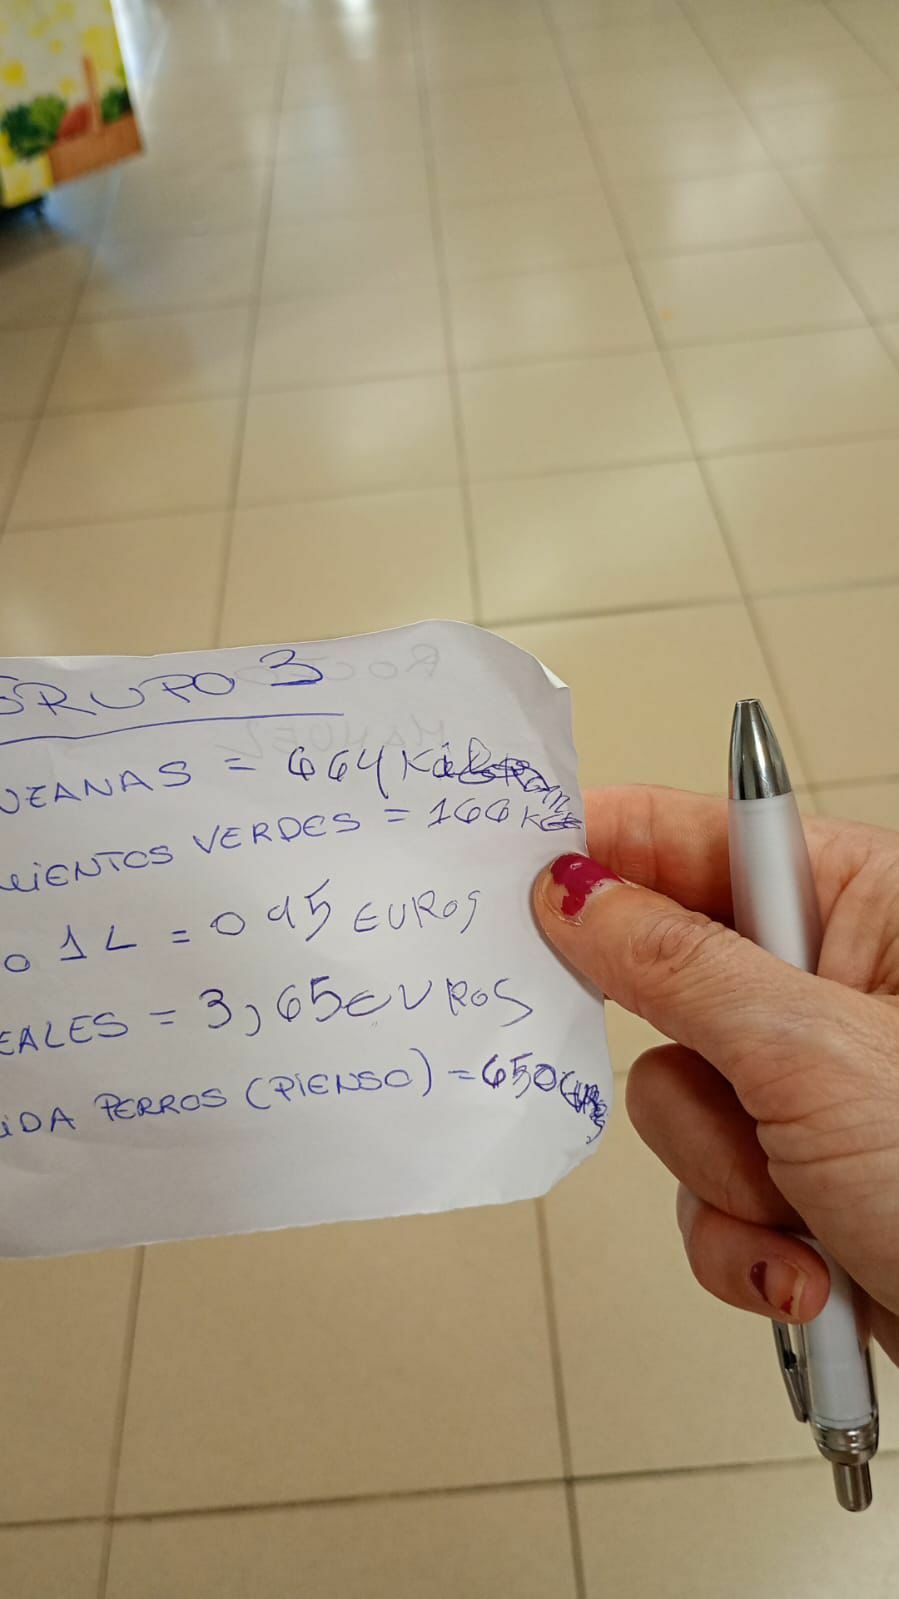 GRUPO 3
NZANAS = 664 K
MIENTOS VERDES = 166 K
O 1 L = 0 95 EUROS
EALES = 3,65 EUROS
IDA PERROS (PIENSO) = 650